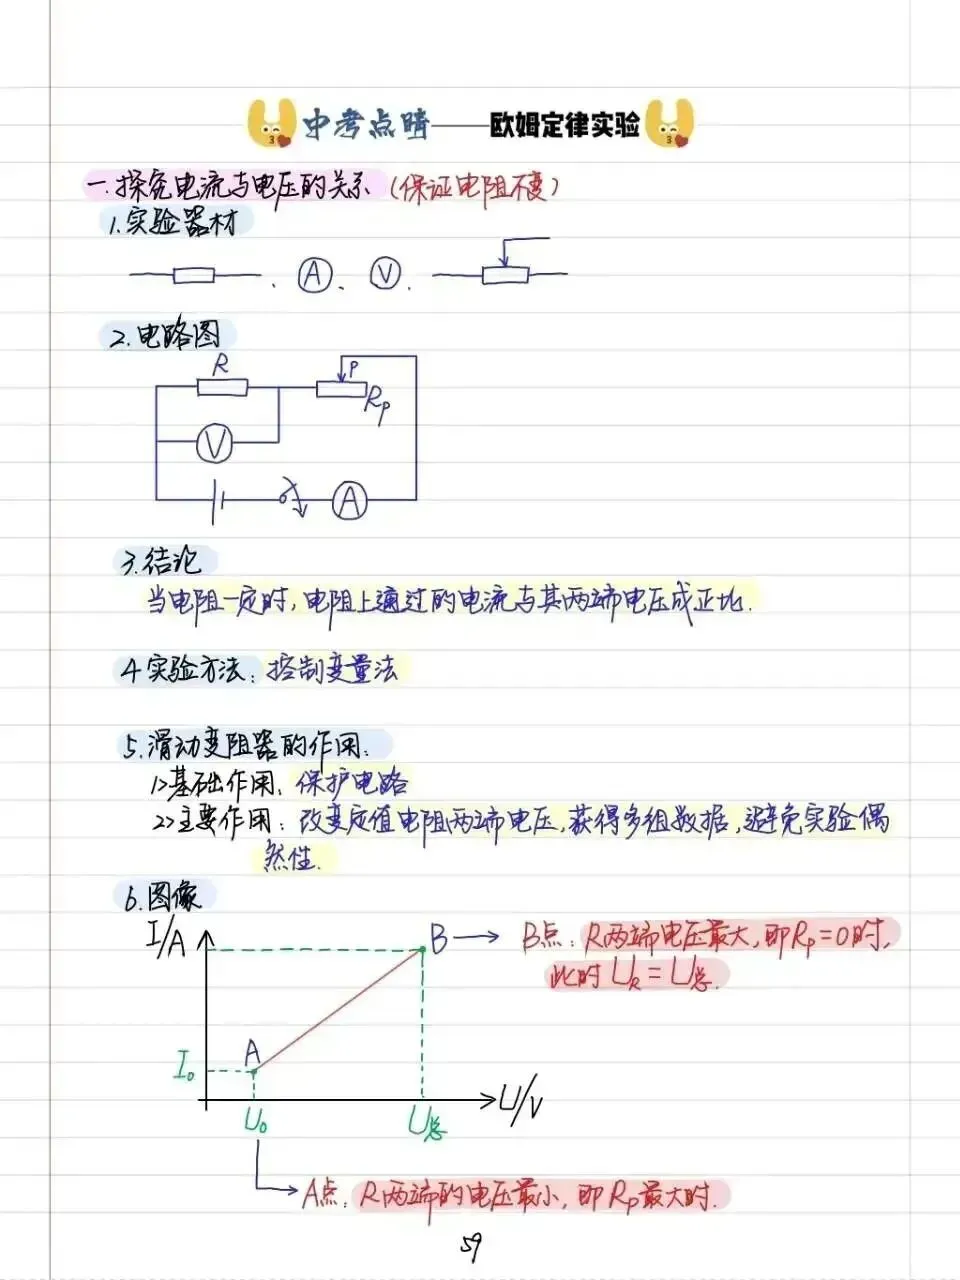 中考点晴——欧姆定律实验
一.探究电流与电压的关系（保证电阻不变）
1.实验器材
、A、V、
2.电路图
R P Rp
V
A
3.结论
当电阻一定时,电阻上通过的电流与其两端电压成正比.
4.实验方法:控制变量法
5.滑动变阻器的作用:
1>基础作用:保护电路
2>主要作用:改变定值电阻两端电压,获得多组数据,避免实验偶
然性.
6.图像
I/A
B → B点:R两端电压最大,即Rp=0时,
此时UR=U总.
A
I₀
U/V
U₀ U总
A点:R两端的电压最小,即Rp最大时.
59